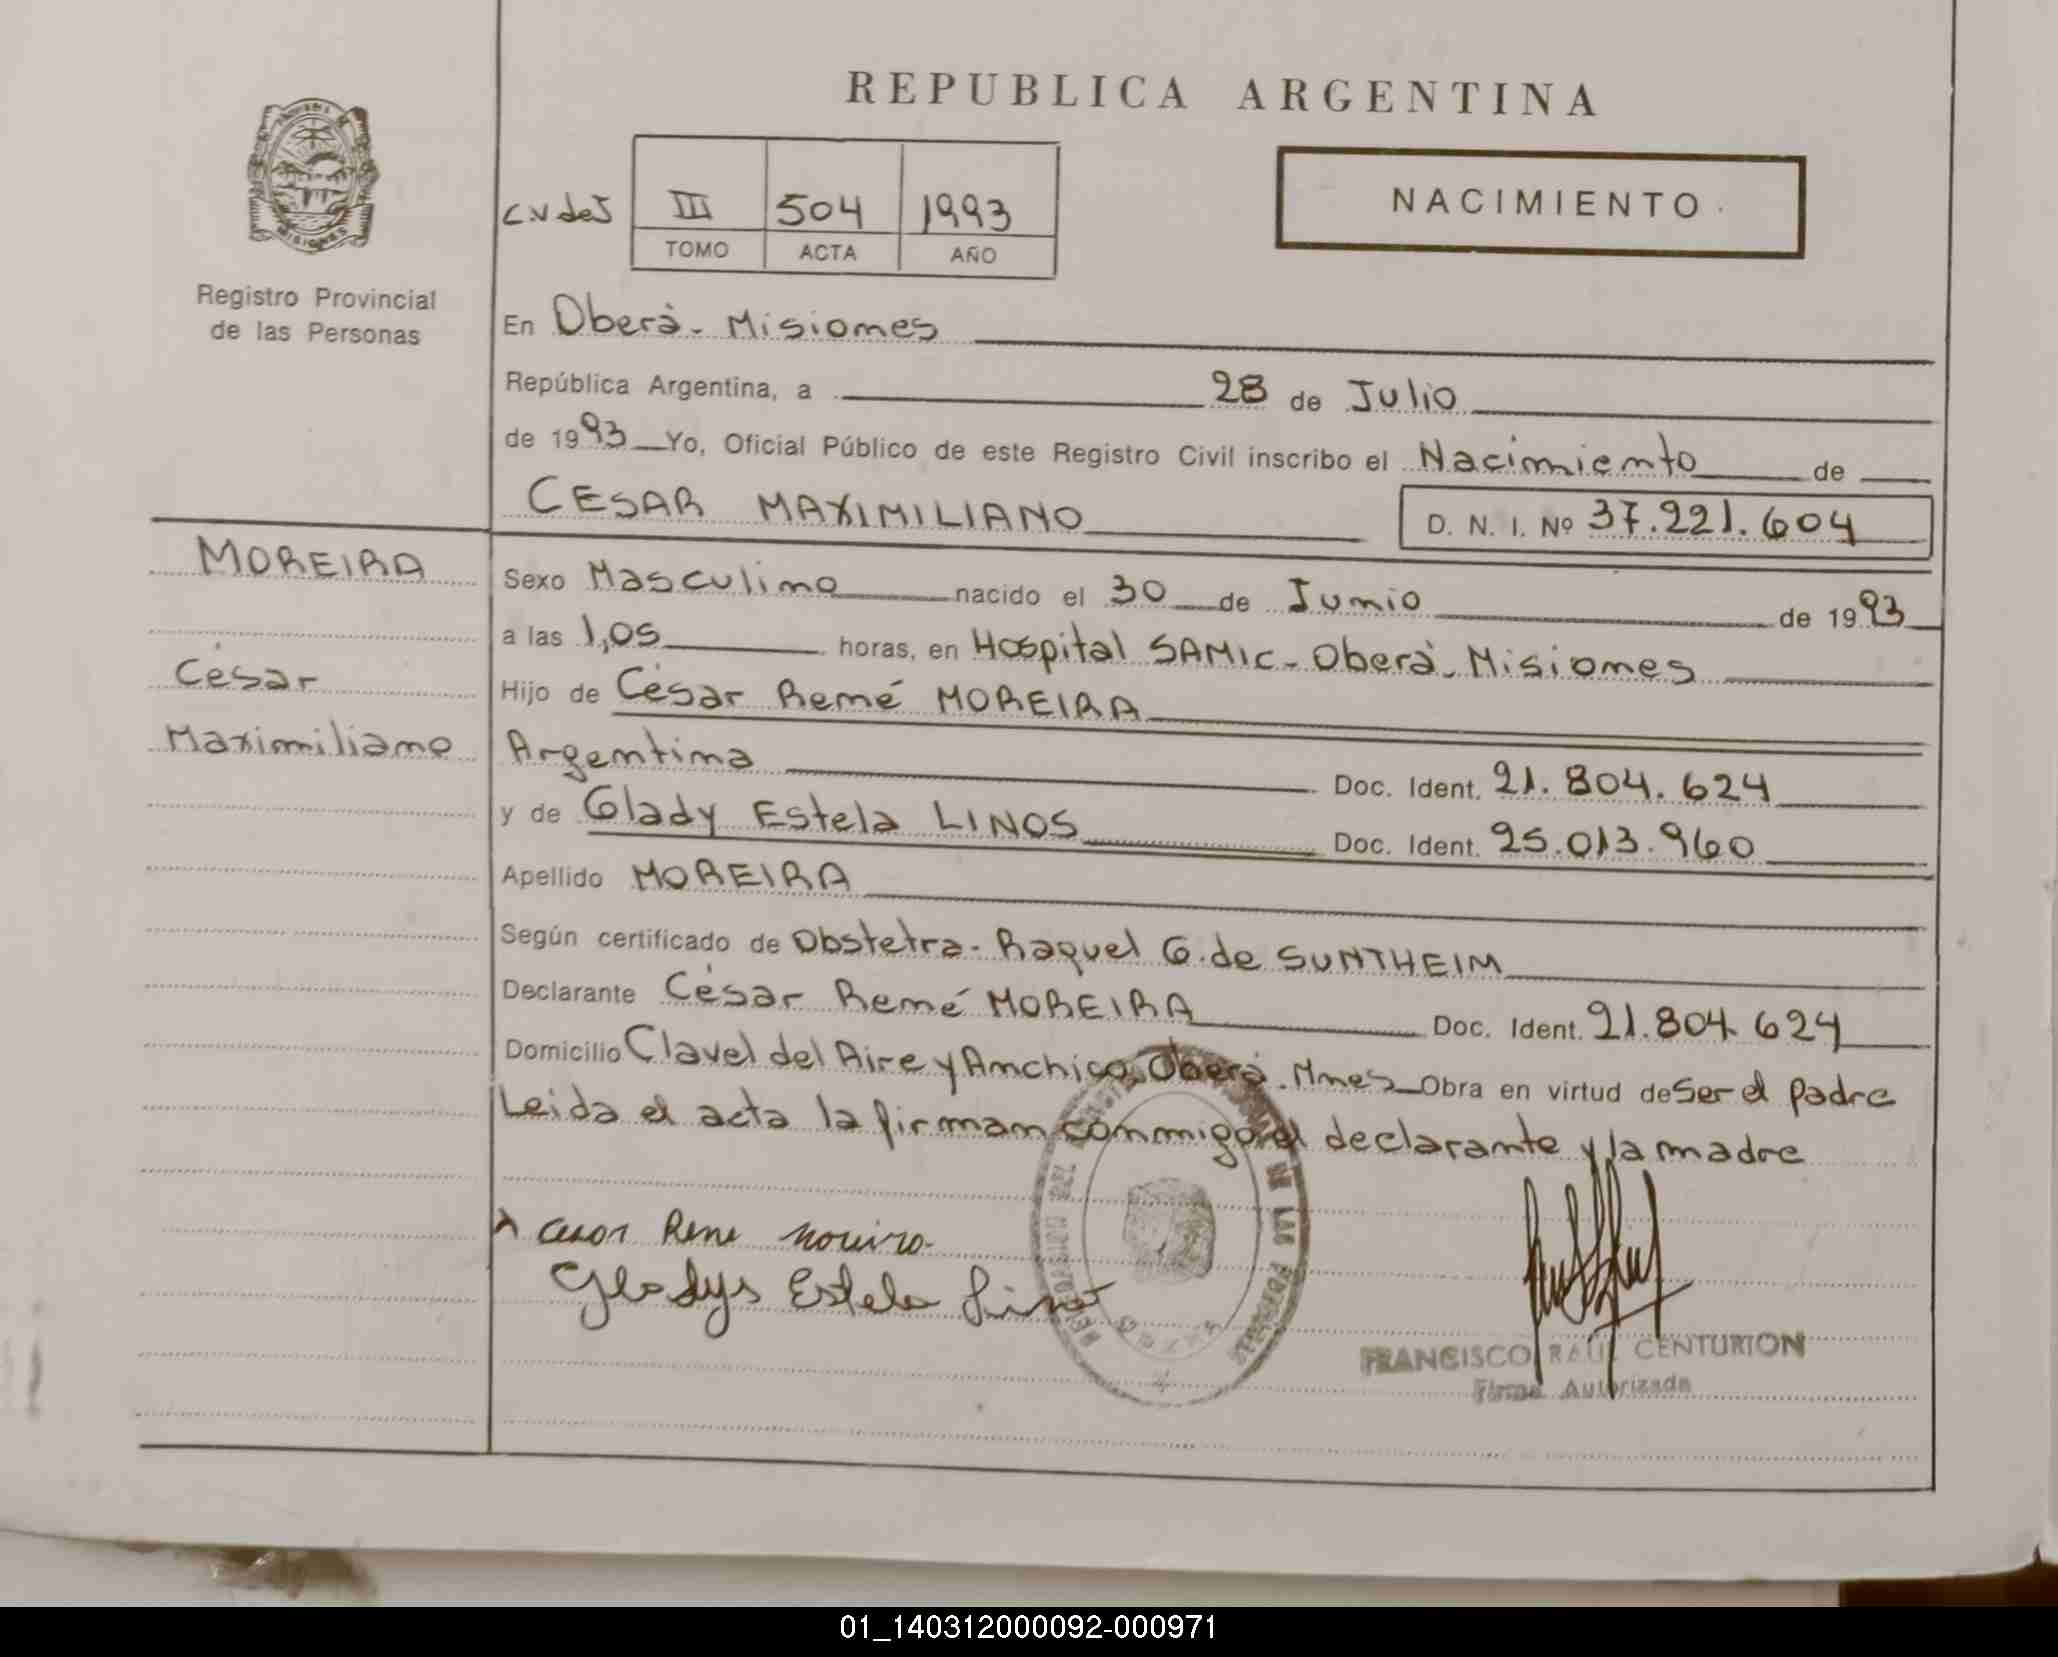 REPUBLICA ARGENTINA
NACIMIENTO
C.V de J
III 504 1993
TOMO ACTA AÑO
MISIONES
Registro Provincial
de las Personas
En Oberà - Misiones
República Argentina, a 28 de Julio
de 1993 Yo, Oficial Público de este Registro Civil inscribo el Nacimiento de
CESAR MAXIMILIANO
D. N. I. Nº 37.221.604
MOREIRA
César
Maximiliano
Sexo Masculino nacido el 30 de Junio de 1993
a las 1,05 horas, en Hospital SAMIC - Oberà - Misiones
Hijo de César René MOREIRA
Argentina Doc. Ident. 21.804.624
y de Glady Estela LINOS Doc. Ident. 25.013.960
Apellido MOREIRA
Según certificado de Obstetra - Raquel G. de SUNTHEIM
Declarante César René MOREIRA Doc. Ident. 21.804.624
Domicilio Clavel del Aire y Anchico, Oberà. Mnes Obra en virtud de Ser el padre
Leida el acta la firman conmigo el declarante y la madre
Cesar Rene Moreira
Gladys Estela Linos
DE LAS PERSONAS
FRANCISCO RAUL CENTURION
Firma Autorizada
01_140312000092-000971